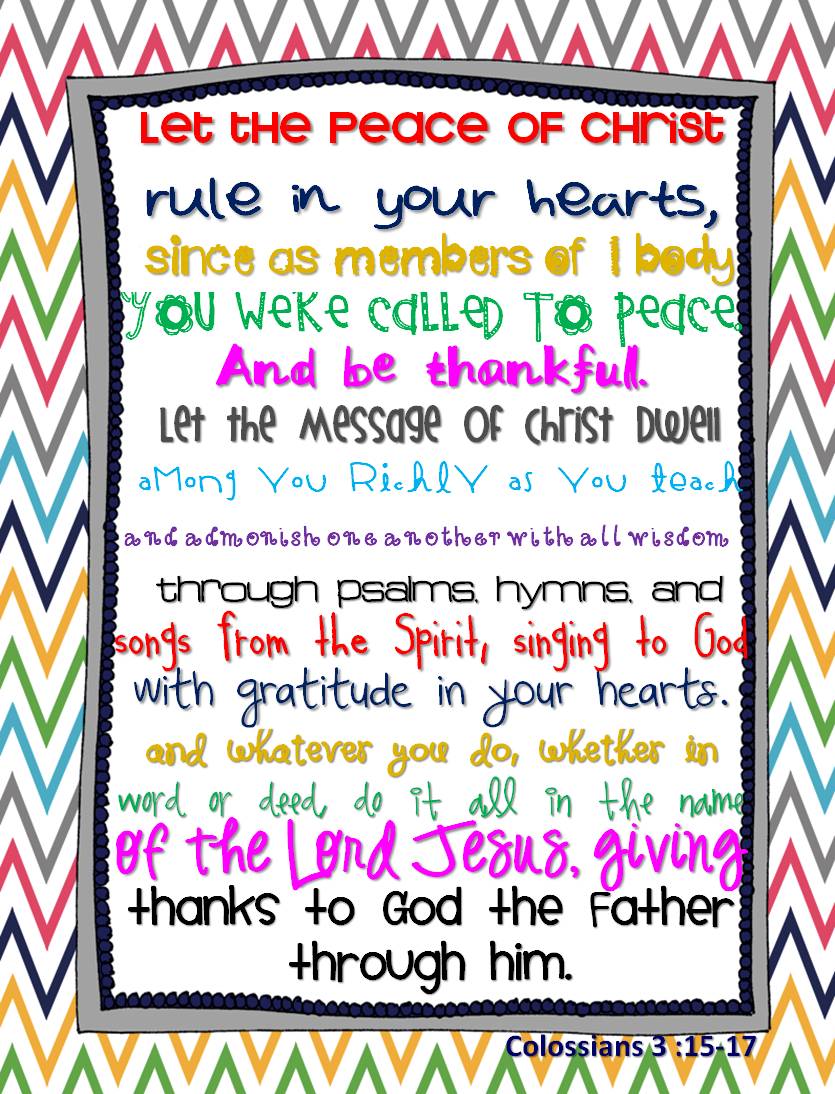 Let the Peace of Christ
rule in your hearts,
since as members of 1 body
You weRe called To peace.
And be thankful.
Let the Message of Christ Dwell
aMong You RichlY as You teach
and admonish one another with all wisdom
through psalms, hymns, and
songs from the Spirit, singing to God
with gratitude in your hearts.
and whatever you do, whether in
word or deed, do it all in the name
of the Lord Jesus, giving
thanks to God the Father
through him.
Colossians 3 :15-17